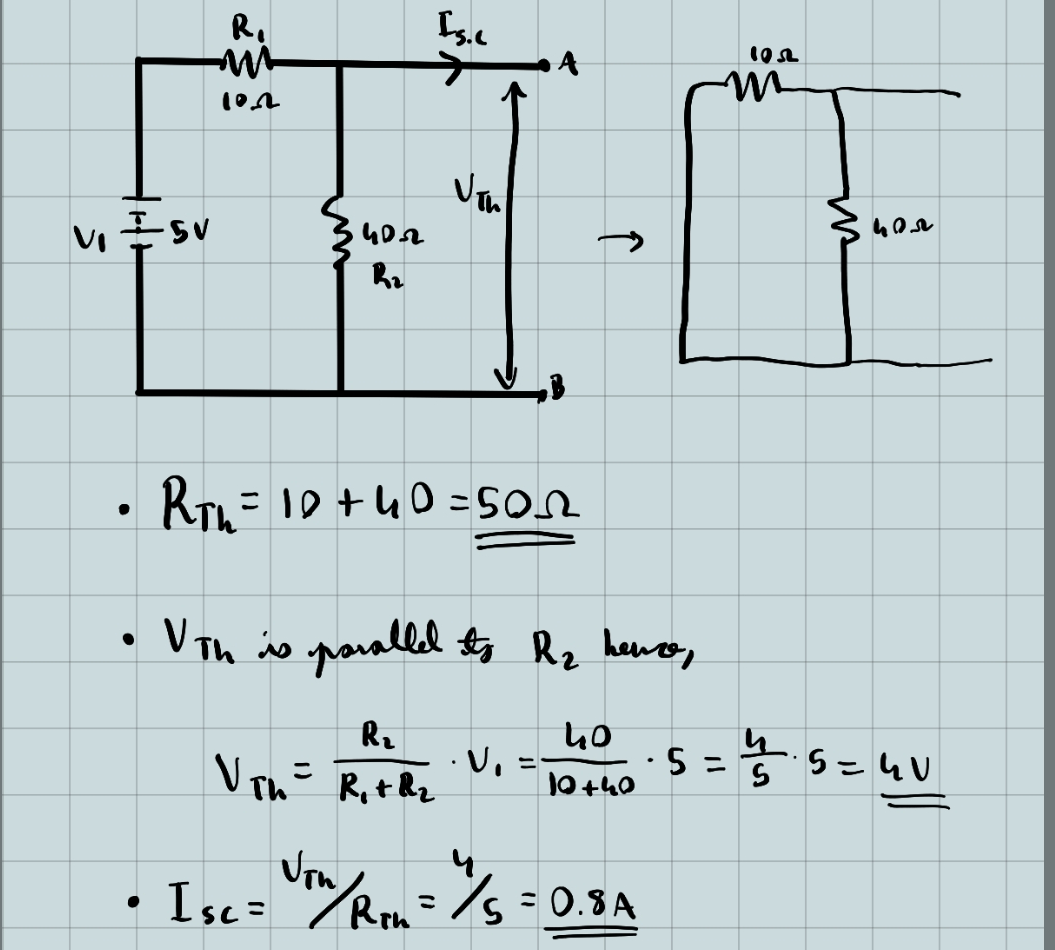 R₁ I s.c
10Ω A 10Ω
V₁ 5V 40Ω V Th → 40Ω
R₂
B
• R Th = 10 + 40 = 50Ω
• V Th is parallel to R₂ hence,
V Th = R₂ / (R₁ + R₂) · V₁ = 40 / (10+40) · 5 = 4/5 · 5 = 4V
• I SC = V Th / R Th = 4/5 = 0.8A